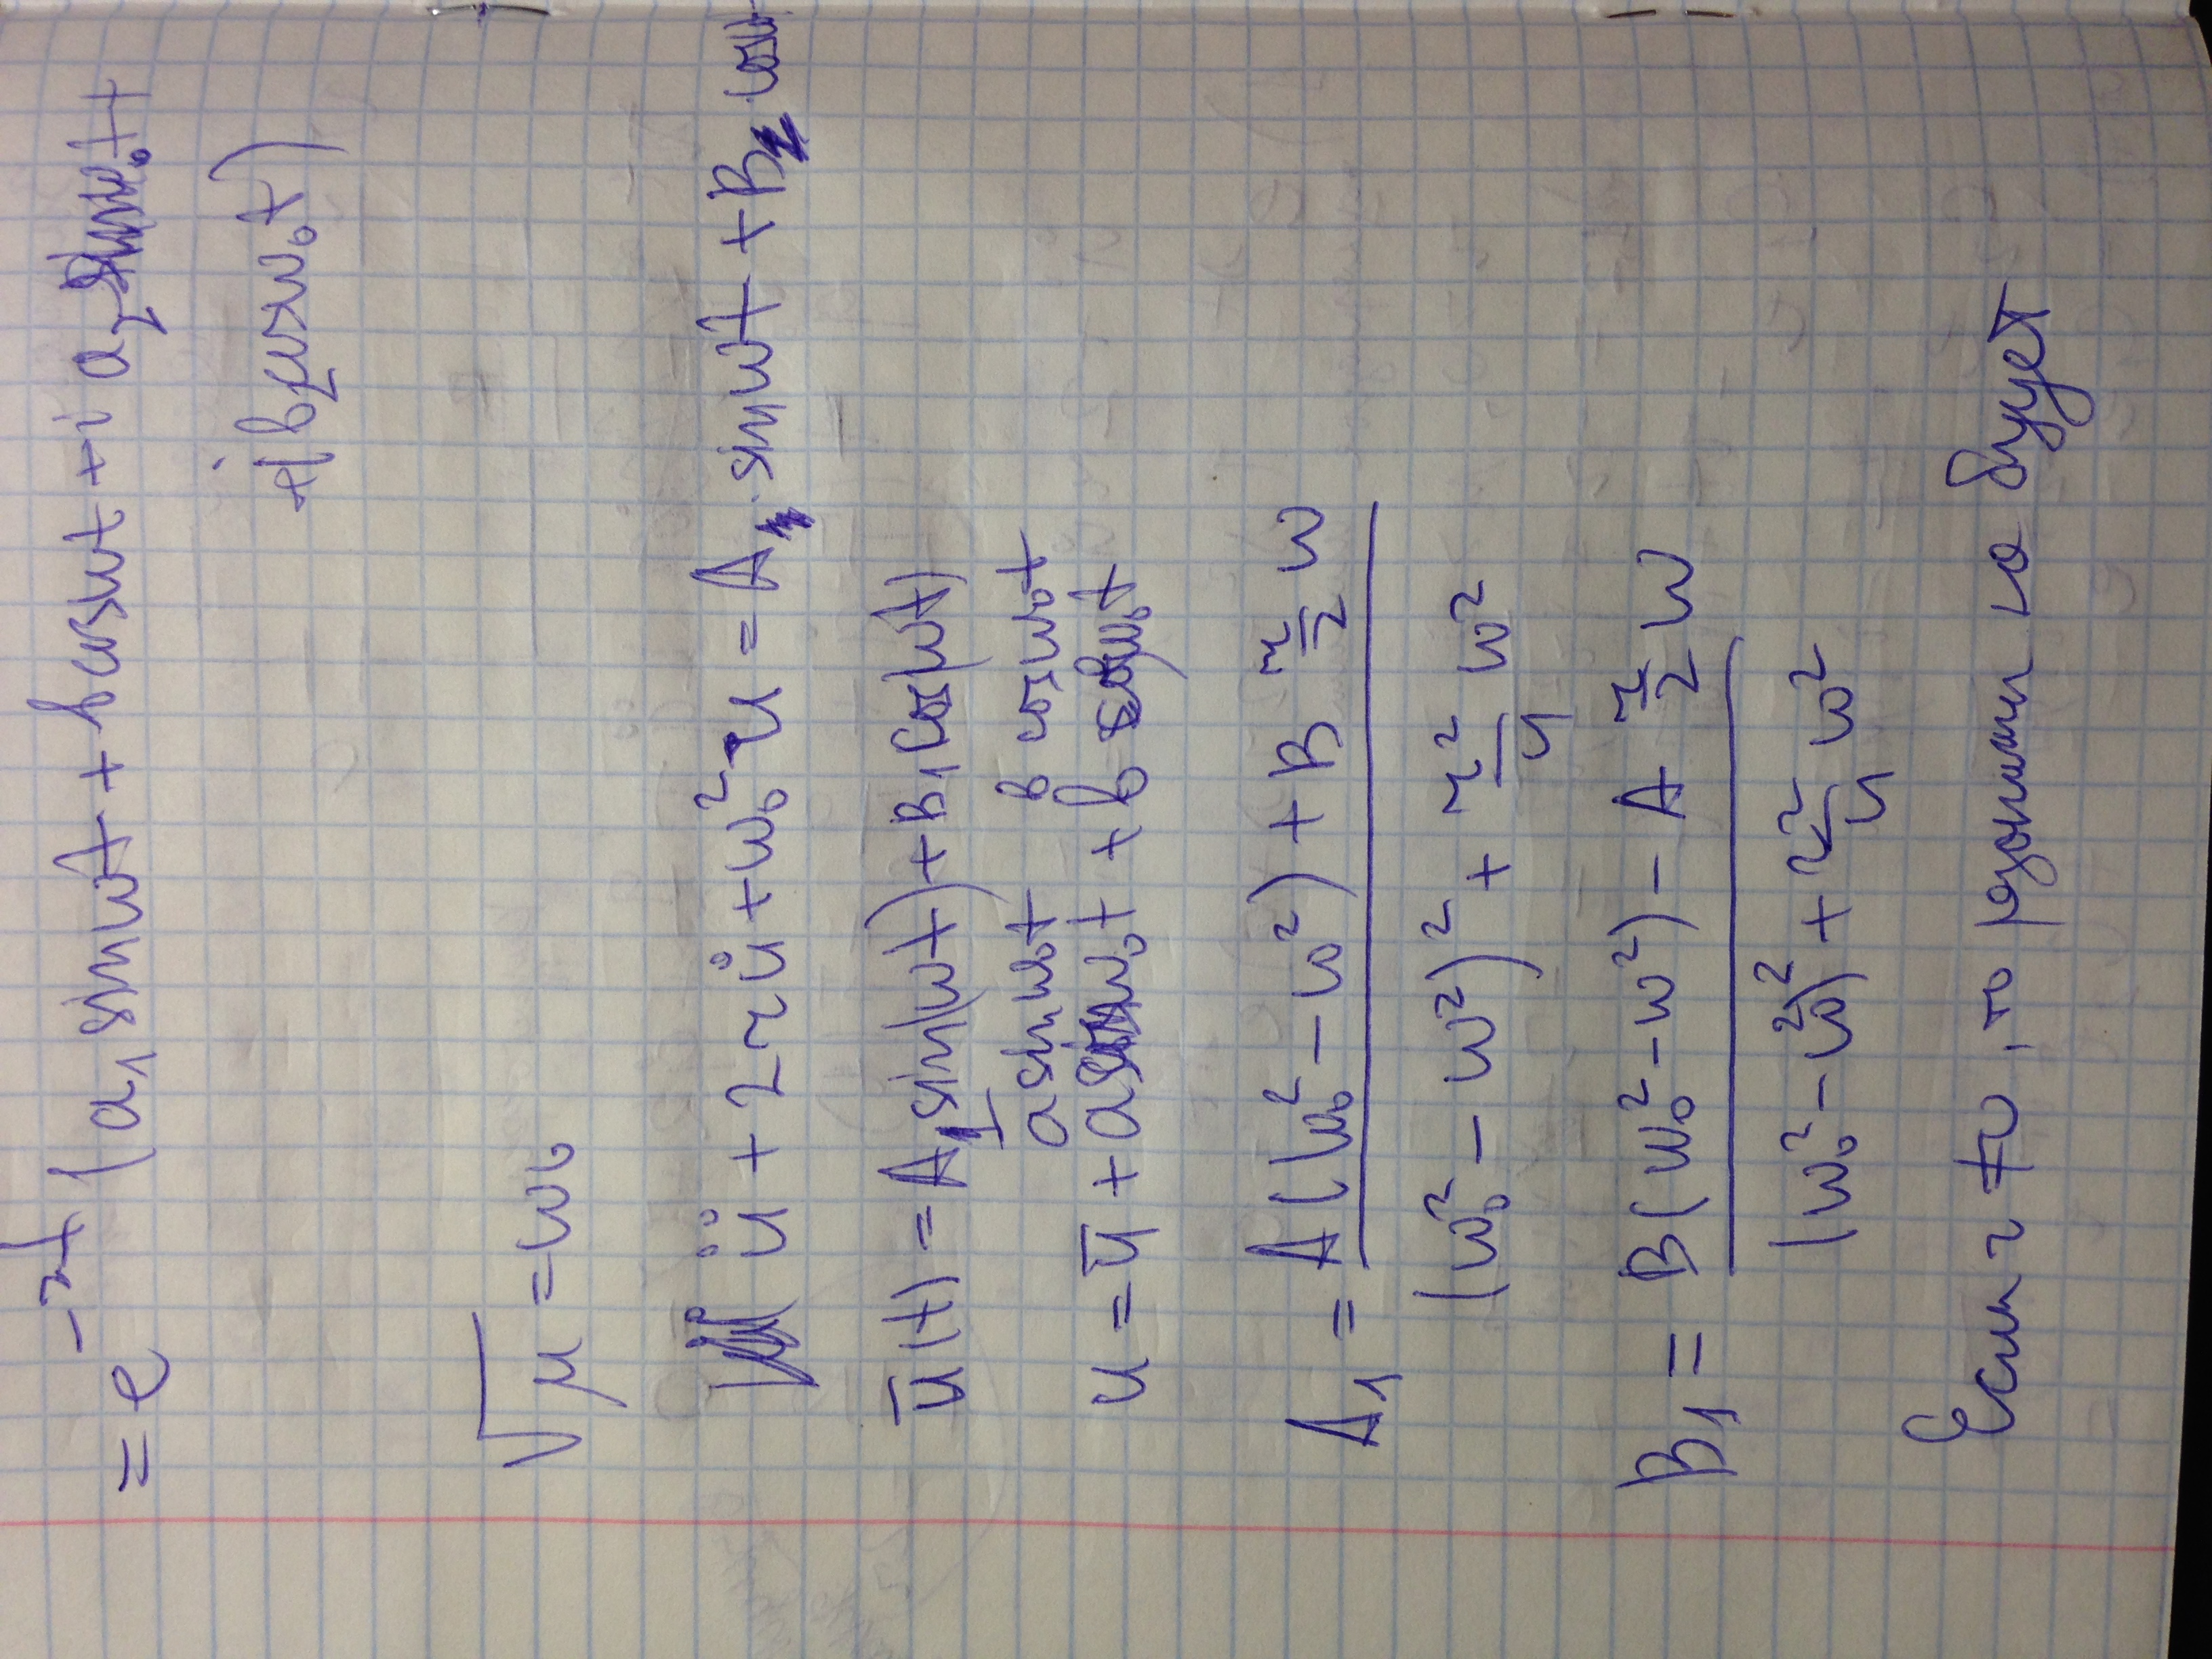 = e^{-rt} (a₁ sin ωt + b cos ωt + i a₂ ω₀t +
+ i b₂ cos ω₀t)
√μ = ω₀
ü + 2ru̇ + ω₀² u = A · sin ωt + B · cos ωt
ū(t) = A₁ sin(ωt) + B₁ cos(ωt)
a sin ω₀t в cos ω₀t
u = ū + a ω₀t + b ω₀t
A₁ = (A(ω₀² - ω²) + B r/2 ω) / ((ω₀² - ω²)² + r²/4 ω²)
B₁ = (B(ω₀² - ω²) - A r/2 ω) / ((ω₀² - ω²)² + r²/4 ω²)
Если r ≠ 0, то резонанс будет